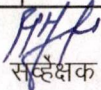 सर्व्हेक्षक